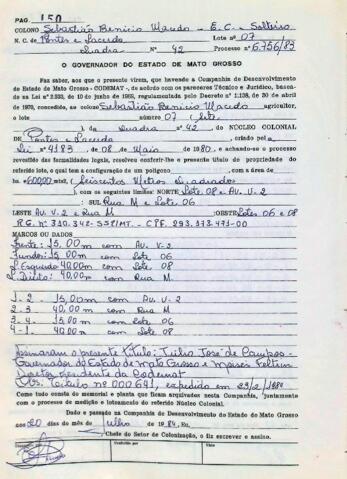 PAG. 150
COLONO Sebastião Benicio Macedo - E. C. - Solteiro
N. C. de Pontes e Lacerda Lote nº 07
Quadra nº 42 Processo nº 6.756/83
O GOVERNADOR DO ESTADO DE MATO GROSSO
Faz saber, aos que o presente virem, que havendo a Companhia de Desenvolvimento
do Estado de Mato Grosso - CODEMAT -, de acordo com os pareceres Técnico e Jurídico, basea-
da na Lei nº 2.333, de 10 de junho de 1965, regulamentada pelo Decreto nº 1.138, de 20 de abril
de 1970, concedido, ao colono Sebastião Benicio Macedo agricultor,
o lote número 07 (Sete
), da Quadra nº 42 DO NÚCLEO COLONIAL
DE Pontes e Lacerda, criado pela
Lei nº 4183 de 08 de Maio de 1980, e achando-se o processo
revestido das formalidades legais, resolveu conferir-lhe o presente título de propriedade do
referido lote, o qual tem a configuração de um polígono com a área de
ha 600,00 mts² (Seiscentos Metros Quadrados
), com os seguintes limites: NORTE Lote 08 e AV. V-2
SUL Rua M e Lote 06
LESTE AV. V-2 e Rua M OESTE Lotes 06 e 08
R.G. Nº 310.342-SSP/MT. - CPF. 293.373.471-00
MARCOS OU DADOS
Frente: 15,00 m com Av. V-2
Fundos: 15,00 m com Lote 06
L. Esquerdo 40,00 m com Lote 08
L. Direito: 40,00 m com Rua M.
1 - 2 - 15,00 m com AV. V-2
2 - 3 40,00 m com Rua M
3 - 4 - 15,00 m com Lote 06
4 - 1 - 40,00 m com Lote 08
Assinaram o presente Título: Júlio José de Campos -
Governador do Estado de Mato Grosso e Moises Feltrin
Diretor Presidente da Codemat
Obs: Titulo nº 000.691, expedido em
Como tudo consta do memorial e planta que ficam arquivados nesta Companhia, juntamente
com o processo de medição e loteamento do referido Núcleo Colonial.
Dado e passado na Companhia de Desenvolvimento do Estado de Mato Grosso
aos 20 dias do mês de julho de 1984. Eu,
Chefe do Setor de Colonização, o fiz escrever e assino.
Conferido por
Visto